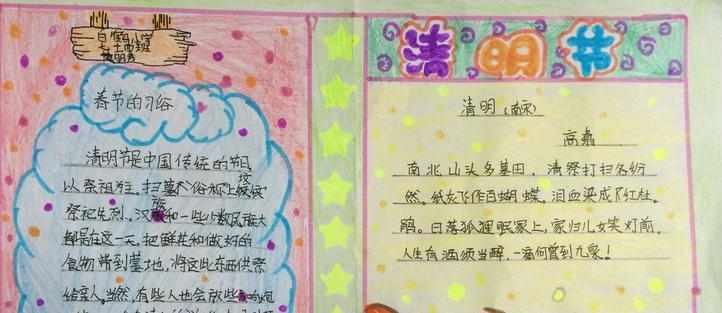 春节的习俗
清明节是中国传统的节日
以祭祖为主,扫墓俗称上坟
祭祀先烈,汉族和一些少数民族大
都是在这一天,把鲜花和做好的
食物带到墓地,将这些东西供祭
给亲人,当然,有些人也会放些鞭炮
清明节
清明(南宋)
高翥
南北山头多墓田,清祭打扫各纷
然。纸灰飞作白蝴蝶,泪血染成红杜
鹃。日落狐狸眠冢上,家归儿女笑灯前。
人生有酒须当醉,一滴何曾到九泉!